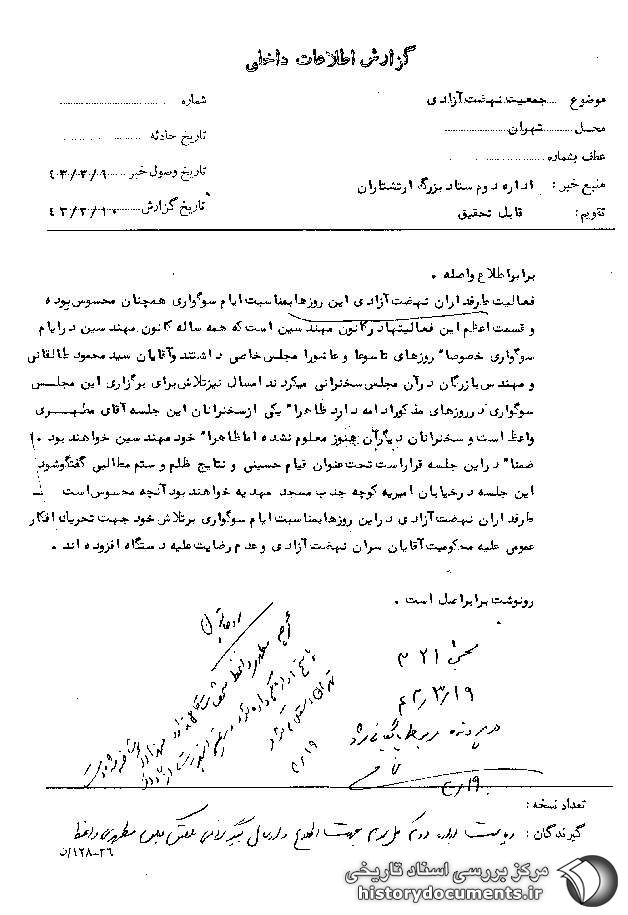 گزارش اطلاعات داخلی
موضوع ..... جمعیت نهضت آزادی
شماره
محل ..... تهران
تاریخ حادثه
عطف بشماره
تاریخ وصول خبر ..... ۴۳/۳/۹
منبع خبر : اداره دوم ستاد بزرگ ارتشتاران
تاریخ گزارش ..... ۴۳/۳/۱۰
تقویم : قابل تحقیق
برابر اطلاع واصله .
فعالیت طرفداران نهضت آزادی این روزها بمناسبت ایام سوگواری همچنان محسوس بوده
و قسمت اعظم این فعالیتها در کانون مهندسین است که همه ساله کانون مهندسین در ایام
سوگواری خصوصا" روزهای تاسوعا و عاشورا مجلس خاصی داشتند و آقایان سید محمود طالقانی
و مهندس بازرگان در آن مجلس سخنرانی میکردند امسال نیز تلاش برای برگزاری این مجلس
سوگواری در روزهای مذکور ادامه دارد ظاهرا" یکی از سخنرانان این جلسه آقای مطهری
واعظ است و سخنرانان دیگر آن هنوز معلوم نشده اما ظاهرا" خود مهندسین خواهند بود .
ضمنا" در این جلسه قرار است تحت عنوان قیام حسینی و نتایج ظلم و ستم مطالبی گفتگو شود
این جلسه در خیابان امیریه کوچه جنب مسجد مهدیه خواهند بود آنچه محسوس است
طرفداران نهضت آزادی در این روزها بمناسبت ایام سوگواری بر تلاش خود جهت تحریک افکار
عمومی علیه محکومیت آقایان سران نهضت آزادی و عدم رضایت علیه دستگاه افزوده اند .
رونوشت برابر اصل است .
بخش ۳۲۱
۴۳/۳/۱۹
۳/۱۹
تعداد نسخه :
گیرندگان :
۳۶-۱۲۸/ن
مرکز بررسی اسناد تاریخی
historydocuments.ir